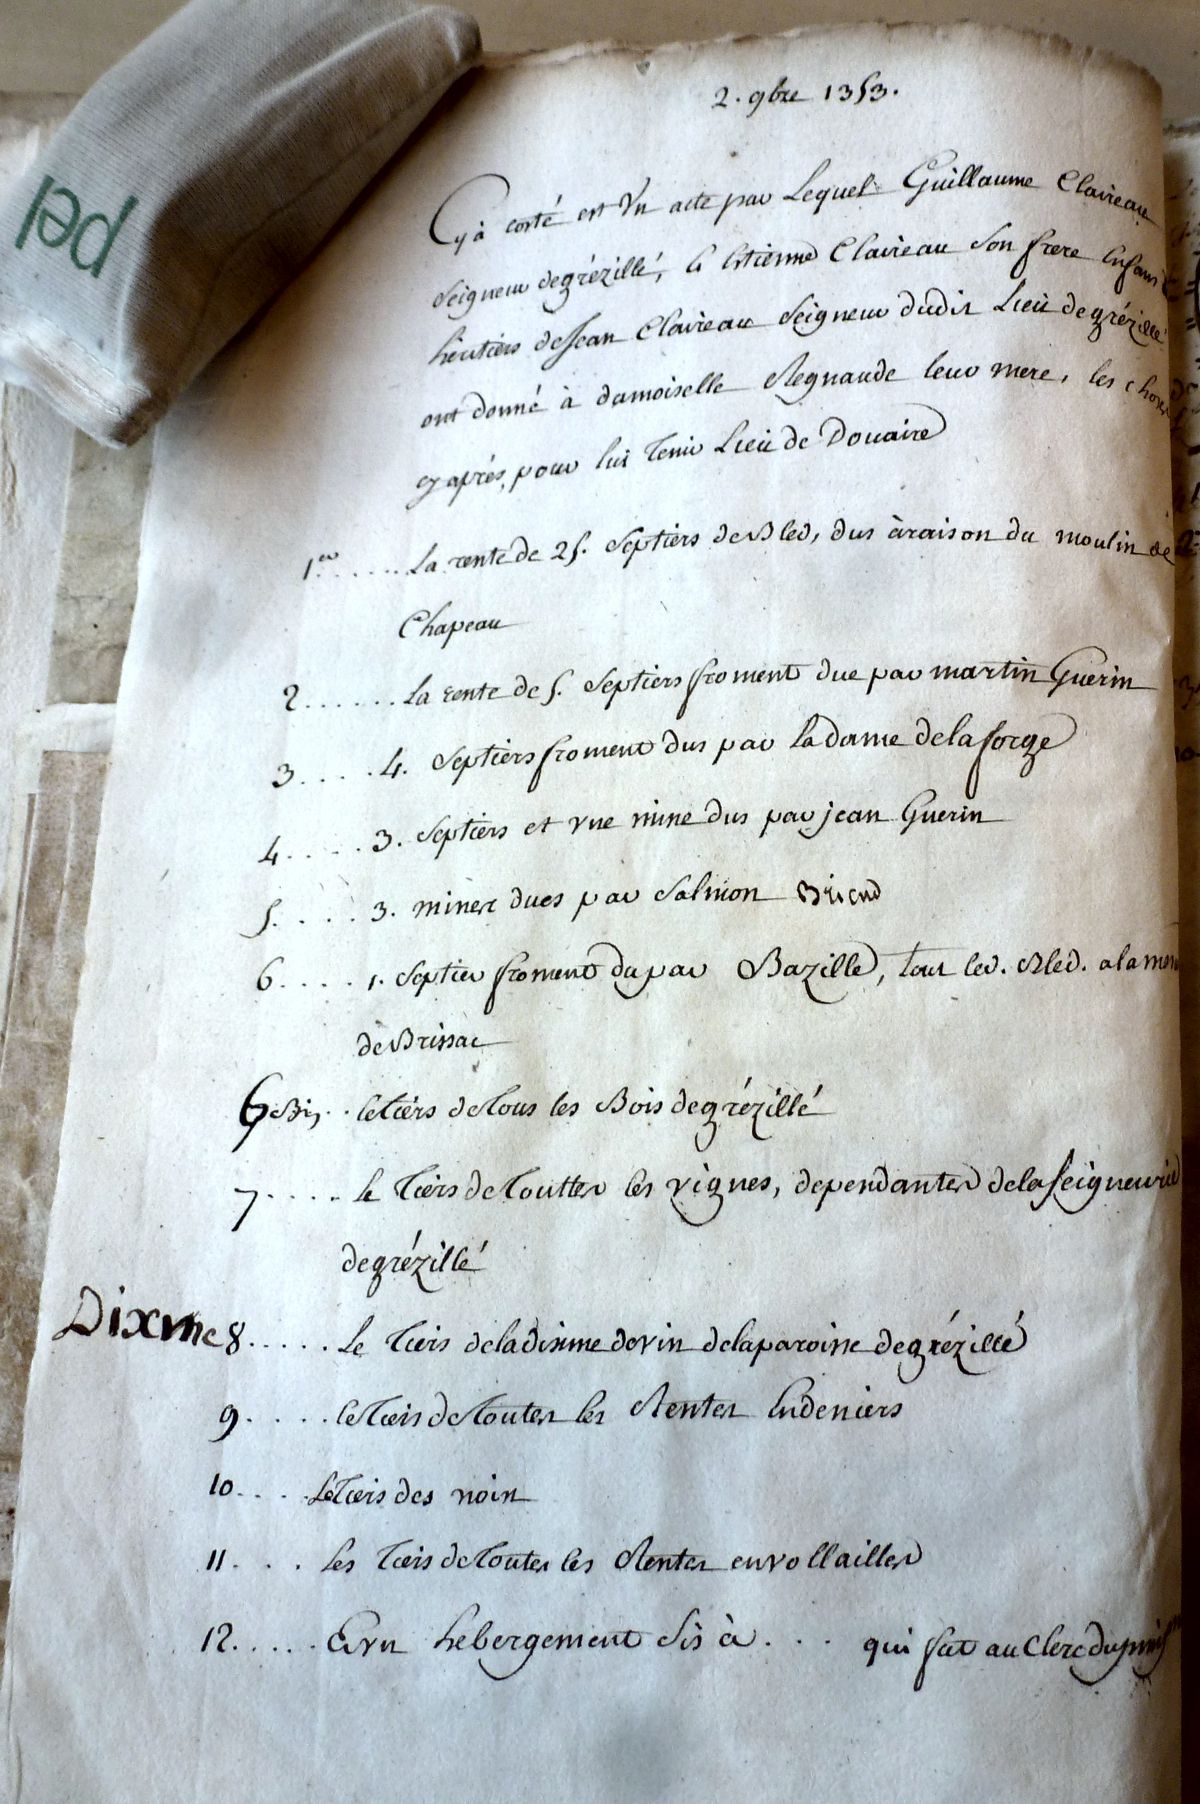 pel
2. 9bre 1353.
Cy à costé est Un acte par Lequel Guillaume Claireau
Seigneur de grézillé, & Estienne Claireau Son frere Enfans &
héritiers de Jean Claireau Seigneur dudit Lieu de grézillé
ont donné à damoiselle Regnaude leur mere, les choses
cy après, pour lui Tenir Lieu de Douaire
1er...... La rente de 25. Septiers de Bled, dus à raison du moulin de
Chapeau
2...... La rente de 5. Septiers froment due par martin Guerin
3..... 4. Septiers froment dus par la dame de la forge
4..... 3. Septiers et vne mine dus par jean Guerin
5..... 3. mines dues par Salmon Briend
6.... 1. Septier froment du par Bazille, tout led. Bled. a la
de Brissac
6 Bis.. le tiers de Tous les Bois de grézillé
7..... le Tiers de Touttes les vignes, dependantes de la Seigneurie
de grézillé
Dixme 8..... Le Tiers de la disme de vin de la paroisse de grézillé
9..... le Tiers de Toutes les Rentes En deniers
10.... Le Tiers des noix
11... les Tiers de Toutes les Rentes en vollailles
12..... Et vn hebergement Sis à... qui fut au Clerc du